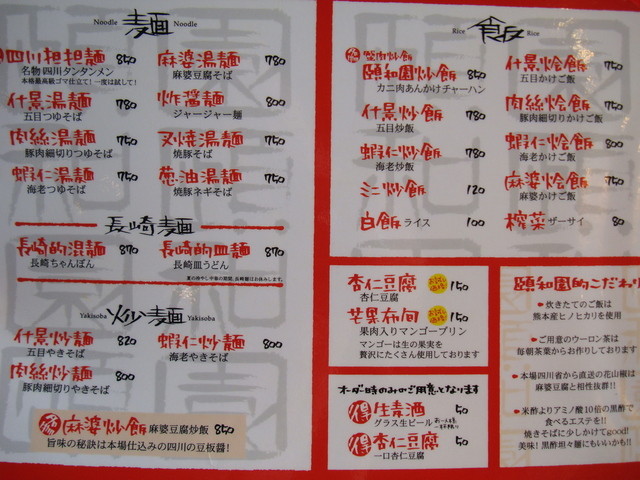 Noodle 麺 Noodle
四川担担麺 850
名物 四川タンタンメン
本格最高級ゴマ仕立て！一度は試して！
什景湯麺 780
五目つゆそば
肉絲湯麺 750
豚肉細切りつゆそば
蝦仁湯麺 750
海老つゆそば
麻婆湯麺 780
麻婆豆腐そば
炸醤麺 800
ジャージャー麺
叉焼湯麺 750
焼豚そば
葱油湯麺 750
焼豚ネギそば
長崎麺
長崎的混麺 870
長崎ちゃんぽん
長崎的皿麺 870
長崎皿うどん
Yakisoba 炒麺 Yakisoba
什景炒麺 820
五目やきそば
肉絲炒麺 800
豚肉細切りやきそば
蝦仁炒麺 800
海老やきそば
麻婆炒飯 麻婆豆腐炒飯 850
旨味の秘訣は本場仕込みの四川の豆板醤！
Rice 飯 Rice
蟹肉炒飯
頤和園炒飯 850
カニ肉あんかけチャーハン
什景炒飯 780
五目炒飯
蝦仁炒飯 780
海老炒飯
ミニ炒飯 120
白飯 ライス 100
什景烩飯 780
五目かけご飯
肉絲烩飯 750
豚肉細切りかけご飯
蝦仁烩飯 800
海老かけご飯
麻婆烩飯 750
麻婆かけご飯
搾菜 ザーサイ 80
杏仁豆腐 150
杏仁豆腐
芒果布甸 150
果肉入りマンゴープリン
マンゴーは生の果実を
贅沢にたくさん使用しております
オーダー時のみのご用意となります
得 生麦酒 50
グラス生ビール
得 杏仁豆腐 50
一口杏仁豆腐
頤和園的こだわり
炊きたてのご飯は
熊本産ヒノヒカリを使用
ご用意のウーロン茶は
毎朝茶葉からお作りしております
本場四川省から直送の花山椒は
麻婆豆腐と相性抜群！！
米酢よりアミノ酸10倍の黒酢で
食べるエステを！！
焼きそばに少しかけてgood！
美味！黒酢坦々麺にもいいかも！！